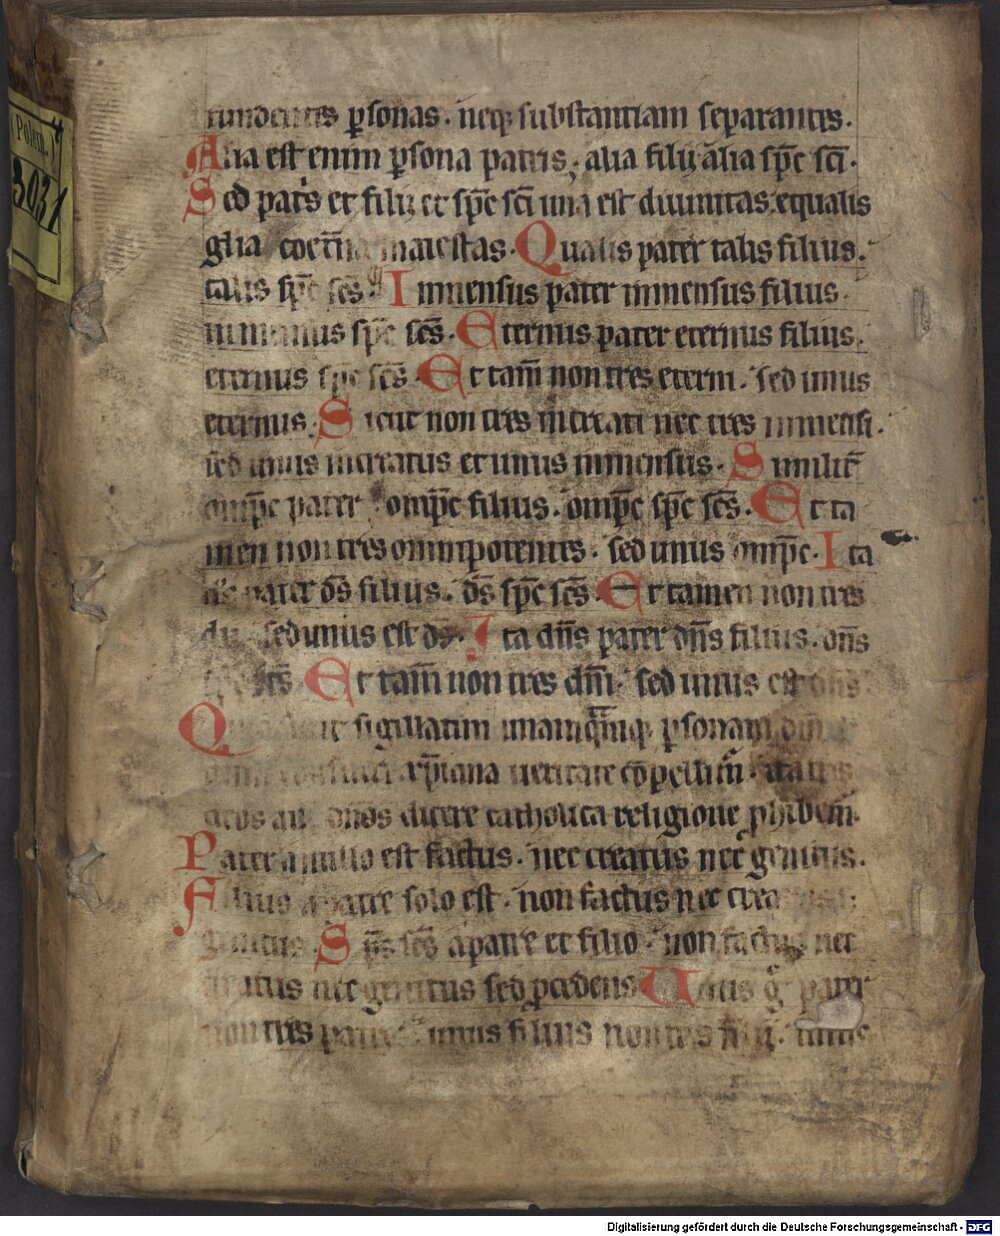 (Polem.)
3031
fundentes ꝑsonas. neqꝫ substantiam separantes.
Alia est enim ꝑsona patris. alia filij alia sp̄c sc̄i.
Sed patˢ et filij et sp̄c sc̄i una est diuinitas equalis
gl̄ia coet̄na maiestas. Qualis pater talis filius.
talis sp̄c sc̄s. Inmensus pater inmensus filius.
inmensus sp̄c sc̄s. Eternus pater eternus filius.
eternus sp̄c sc̄s. Et tam̄ non tres eterni. sed unus
eternus. Sicut non tres increati nec tres inmensi.
sed unus increatus et unus inmensus. Similit̄
omp̄c pater omp̄c filius. omp̄c sp̄c sc̄s. Et ta
men non tres omnipotentes. sed unus omp̄c. Ita
d̄s pater d̄s filius. d̄s sp̄c sc̄s. Et tamen non tres
dij sed unus est d̄s. Ita dn̄s pater dn̄s filius. dn̄s
sp̄c sc̄s Et tam̄ non tres dn̄i. sed unus est dn̄s.
sigillatim unamqm̄qꝫ ꝑsonam
xp̄iana ueritate cōpellim̄. ita tres
deos au dn̄os dicere catholica religione ꝓhibem̄.
Pater a nullo est factus. nec creatus nec genitus.
Filius a patre solo est. non factus nec crea
genitus. Sp̄s sc̄s a patre et filio. non factus nec
creatus nec genitus sed ꝓcedens. Unus gͦ pater
non tres patres unus filius non tres filij. unus
Digitalisierung gefördert durch die Deutsche Forschungsgemeinschaft - DFG